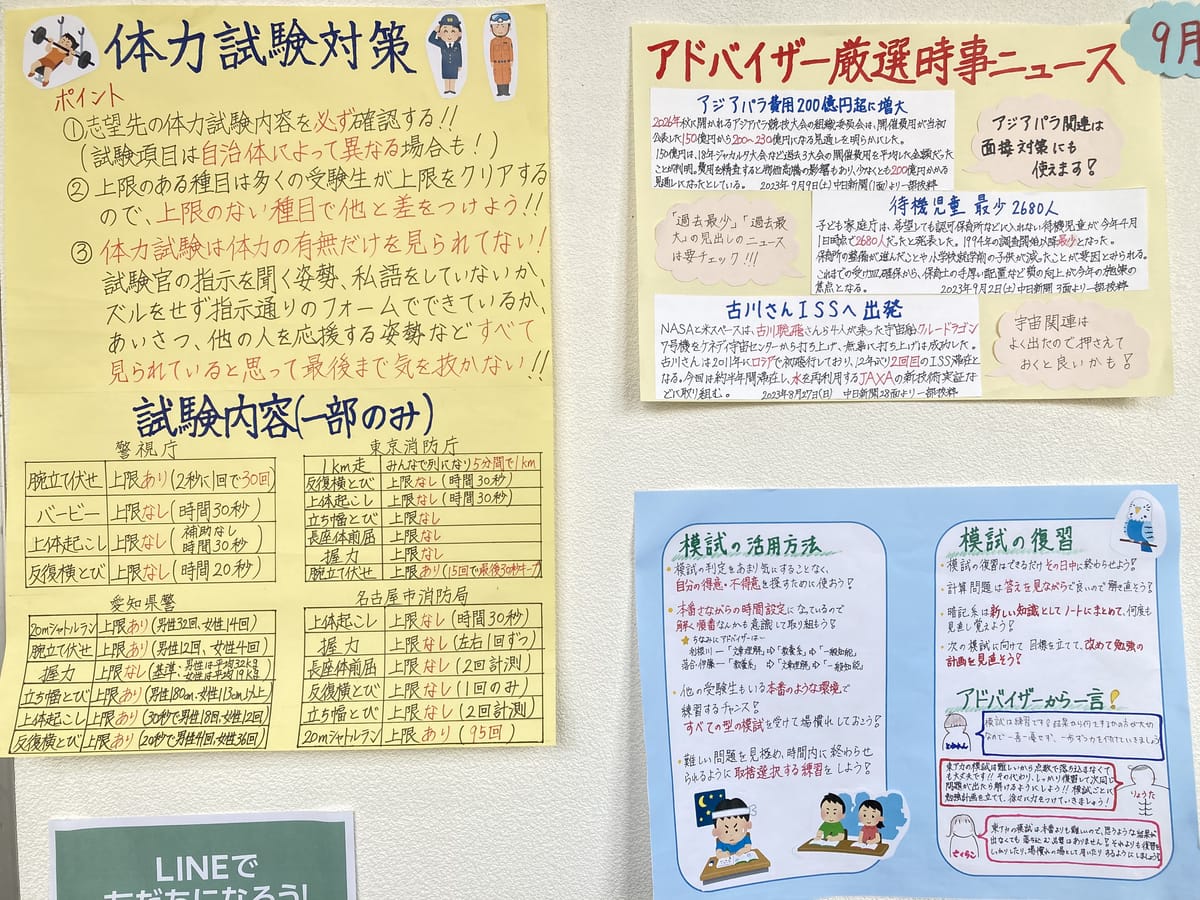 体力試験対策
ポイント
①志望先の体力試験内容を必ず確認する!!
(試験項目は自治体によって異なる場合も!)
②上限のある種目は多くの受験生が上限をクリアする
ので、上限のない種目で他と差をつけよう!!
③体力試験は体力の有無だけを見られてない!
試験官の指示を聞く姿勢、私語をしていないか、
ズルをせず指示通りのフォームでできているか、
あいさつ、他の人を応援する姿勢など すべて
見られていると思って最後まで気を抜かない!!
試験内容(一部のみ)
警視庁
腕立て伏せ 上限あり(2秒に1回で30回)
バーピー 上限なし(時間30秒)
上体起こし 上限なし(補助なし 時間30秒)
反復横とび 上限なし(時間20秒)
東京消防庁
1km走 みんなで列になり5分間で1km
反復横とび 上限なし(時間30秒)
上体起こし 上限なし(時間30秒)
立ち幅とび 上限なし
長座体前屈 上限なし
握力 上限なし
腕立て伏せ 上限あり(15回で最後30秒キープ)
愛知県警
20mシャトルラン 上限あり(男性32回、女性14回)
腕立て伏せ 上限あり(男性12回、女性4回)
握力 上限なし(基準・男性は平均32kg 女性は平均19kg)
立ち幅とび 上限あり(男性180cm、女性113cm以上)
上体起こし 上限あり(30秒で男性18回、女性12回)
反復横とび 上限あり(20秒で男性41回、女性36回)
名古屋市消防局
上体起こし 上限なし(時間30秒)
握力 上限なし(左右1回ずつ)
長座体前屈 上限なし(2回計測)
反復横とび 上限なし(1回のみ)
立ち幅とび 上限なし(2回計測)
20mシャトルラン 上限あり(95回)
LINEで
友だちになろう!
9月
アドバイザー厳選時事ニュース
アジアパラ費用200億円超に増大
2026年秋に開かれるアジアパラ競技大会の組織委員会は、開催費用が当初
公表した150億円から200~230億円になる見通しを明らかにした。
150億円は、18年ジャカルタ大会など過去3大会の開催費用を平均した金額だった
ことが判明。費用を精査すると物価高騰の影響もあり、少なくとも200億円かかる
見通しになったとしている。 2023年9月9日(土)中日新聞(1面)より一部抜粋
アジアパラ関連は
面接対策にも
使えます!
待機児童 最少2680人
子ども家庭庁は、希望しても認可保育所などに入れない待機児童が今年4月
1日時点で2680人だったと発表した。1994年の調査開始以降最少となった。
保育所の整備が進んだことや小学校就学前の子供が減ったことが要因とみられる。
これまでの受け皿確保から、保育士の手厚い配置など質の向上が今年の施策の
焦点となる。 2023年9月2日(土)中日新聞 3面より一部抜粋
「過去最少」「過去最
大」の見出しのニュース
は要チェック!!!
古川さんISSへ出発
NASAと米スペースXは、古川聡飛さんら4人が乗った宇宙船クルードラゴン
7号機をケネディ宇宙センターから打ち上げ、無事に打ち上げは成功した。
古川さんは2011年にロシアで初飛行しており、12年ぶり2回目のISS滞在と
なる。今回は約半年間滞在し、水を再利用するJAXAの新技術実証な
どに取り組む。 2023年8月27日(日) 中日新聞28面より一部抜粋
宇宙関連は
よく出たので、押さえて
おくと良いかも!
模試の活用方法
・模試の判定をあまり気にすることなく、
自分の得意・不得意を探すために使おう!
・本番さながらの時間設定になっているので
解く順番なんかも意識して取り組もう!
★ちなみにアドバイザーは~
利根川―「文章理解」⇨「教養系」⇨「一般知能」
落合・伊藤―「教養系」⇨「文章理解」⇨「一般知能」
・他の受験生もいる本番のような環境で
練習するチャンス!
すべての型の模試を受けて場慣れしておこう!
・難しい問題を見極め、時間内に終わらせ
られるように取捨選択する練習をしよう!
模試の復習
・模試の復習はできるだけその日中に終わらせよう!
・計算問題は答えを見ながらで良いので解き直そう!
・暗記系は新しい知識としてノートにまとめて、何度も
見直し覚えよう!
・次の模試に向けて目標を立てて、改めて勉強の
計画を見直そう!
アドバイザーから一言!
模試は練習です!結果から何をするかの方が大切
なので一喜一憂せず、一歩ずつ力を付けていきましょう
ともみん
東アカの模試は難しいから点数で落ち込まなくて
も大丈夫です!!その代わり、しっかり復習して次同じ
問題が出たら解けるようにしよう!!模試ごとに
勉強計画を立てて、徐々に力をつけていきましょう!
りょうた
東アカの模試は本番よりも難しいので、思うような結果が
出なくても落ち込む必要はありません!それよりも復習を
しっかりしたり、場慣れの場として用いたりするようにしましょう!
さくらこ